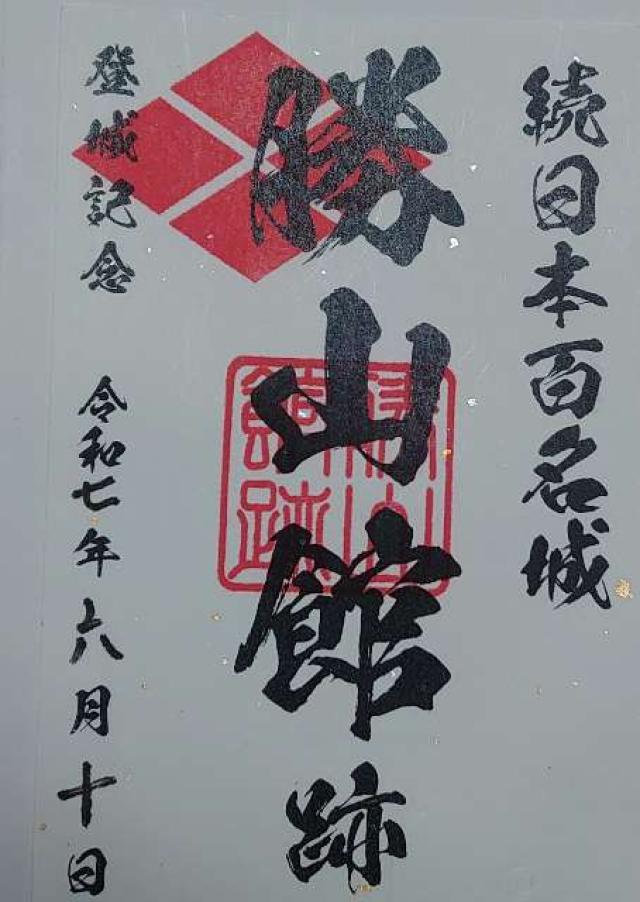 続日本百名城
勝山館跡
勝山
館跡
登城記念
令和七年六月十日